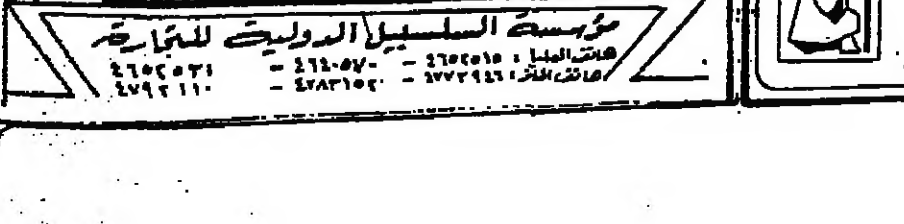 مؤسسة السلسبيل الدولية للتجارة
هاتف العليا : ٤٦٥٢٥١٥ - ٤٦٤٠٥٧٠ - ٤٦٥٢٥٣١
هاتف الملز : ٤٧٧٢٩٤٦ - ٤٧٨٣١٥٢ - ٤٧٩٢١١٠